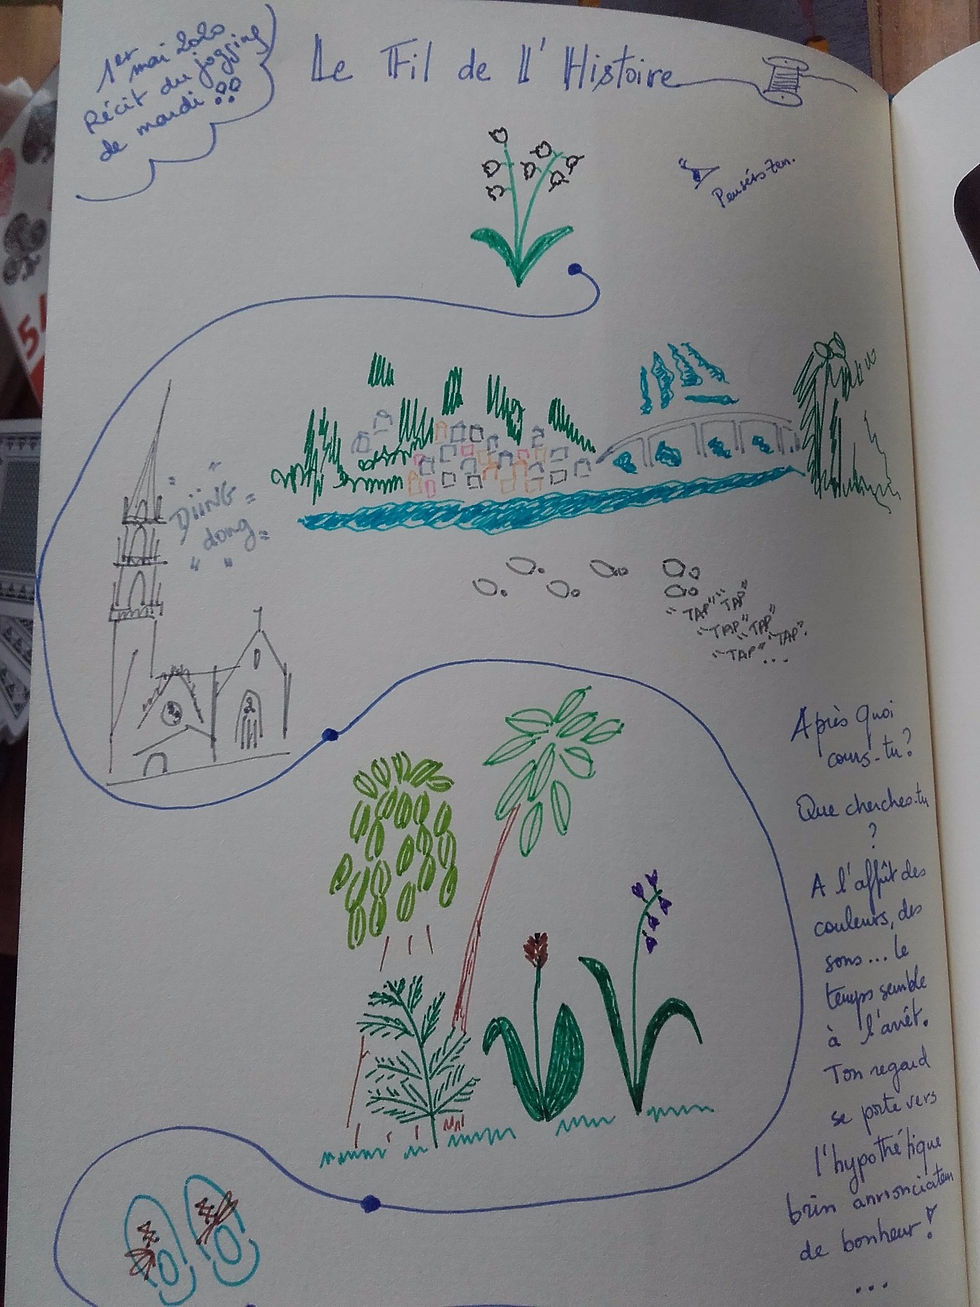 1er
mai 2020
Récit du jogging
de mardi !?
Le Fil de l'Histoire
Pensées zen.
" DiiNG "
dong "
" "
" TAP" " TAP"
" TAP" "TAP"
" TAP" TAP"
...
Après quoi
cours-tu?
Que cherches-tu
?
A l'affût des
couleurs, des
sons... le
temps semble
à l'arrêt.
Ton regard
se porte vers
l'hypothétique
brin annonciateur
de bonheur !
...
5